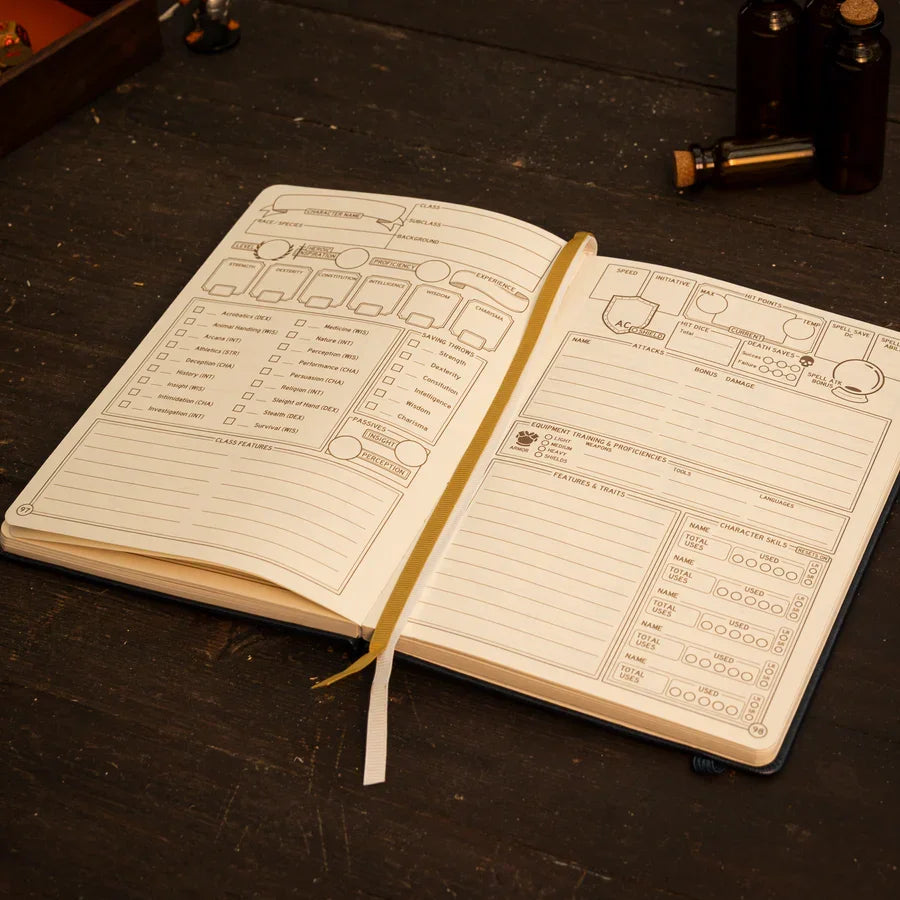 CHARACTER NAME
CLASS
RACE / SPECIES
SUBCLASS
BACKGROUND
LEVEL
HEROIC
INSPIRATION
PROFICIENCY
EXPERIENCE
STRENGTH
DEXTERITY
CONSTITUTION
INTELLIGENCE
WISDOM
CHARISMA
Acrobatics (DEX)
Animal Handling (WIS)
Arcana (INT)
Athletics (STR)
Deception (CHA)
History (INT)
Insight (WIS)
Intimidation (CHA)
Investigation (INT)
Medicine (WIS)
Nature (INT)
Perception (WIS)
Performance (CHA)
Persuasion (CHA)
Religion (INT)
Sleight of Hand (DEX)
Stealth (DEX)
Survival (WIS)
SAVING THROWS
Strength
Dexterity
Constitution
Intelligence
Wisdom
Charisma
PASSIVES
INSIGHT
PERCEPTION
CLASS FEATURES
97
SPEED
INITIATIVE
AC
SHIELD
MAX
HIT POINTS
CURRENT
TEMP
HIT DICE
Total
DEATH SAVES
Succes
Failure
SPELL SAVE
DC
SPELL
ABILI
SPELL ATK
BONUS
NAME
ATTACKS
BONUS
DAMAGE
EQUIPMENT TRAINING & PROFICIENCIES
ARMOR
LIGHT
MEDIUM
HEAVY
SHIELDS
WEAPONS
TOOLS
LANGUAGES
FEATURES & TRAITS
CHARACTER SKILS
RESETS ON
NAME
TOTAL
USES
USED
LR
SR
NAME
TOTAL
USES
USED
LR
SR
NAME
TOTAL
USES
USED
LR
SR
NAME
TOTAL
USES
USED
LR
SR
NAME
TOTAL
USES
USED
LR
SR
98